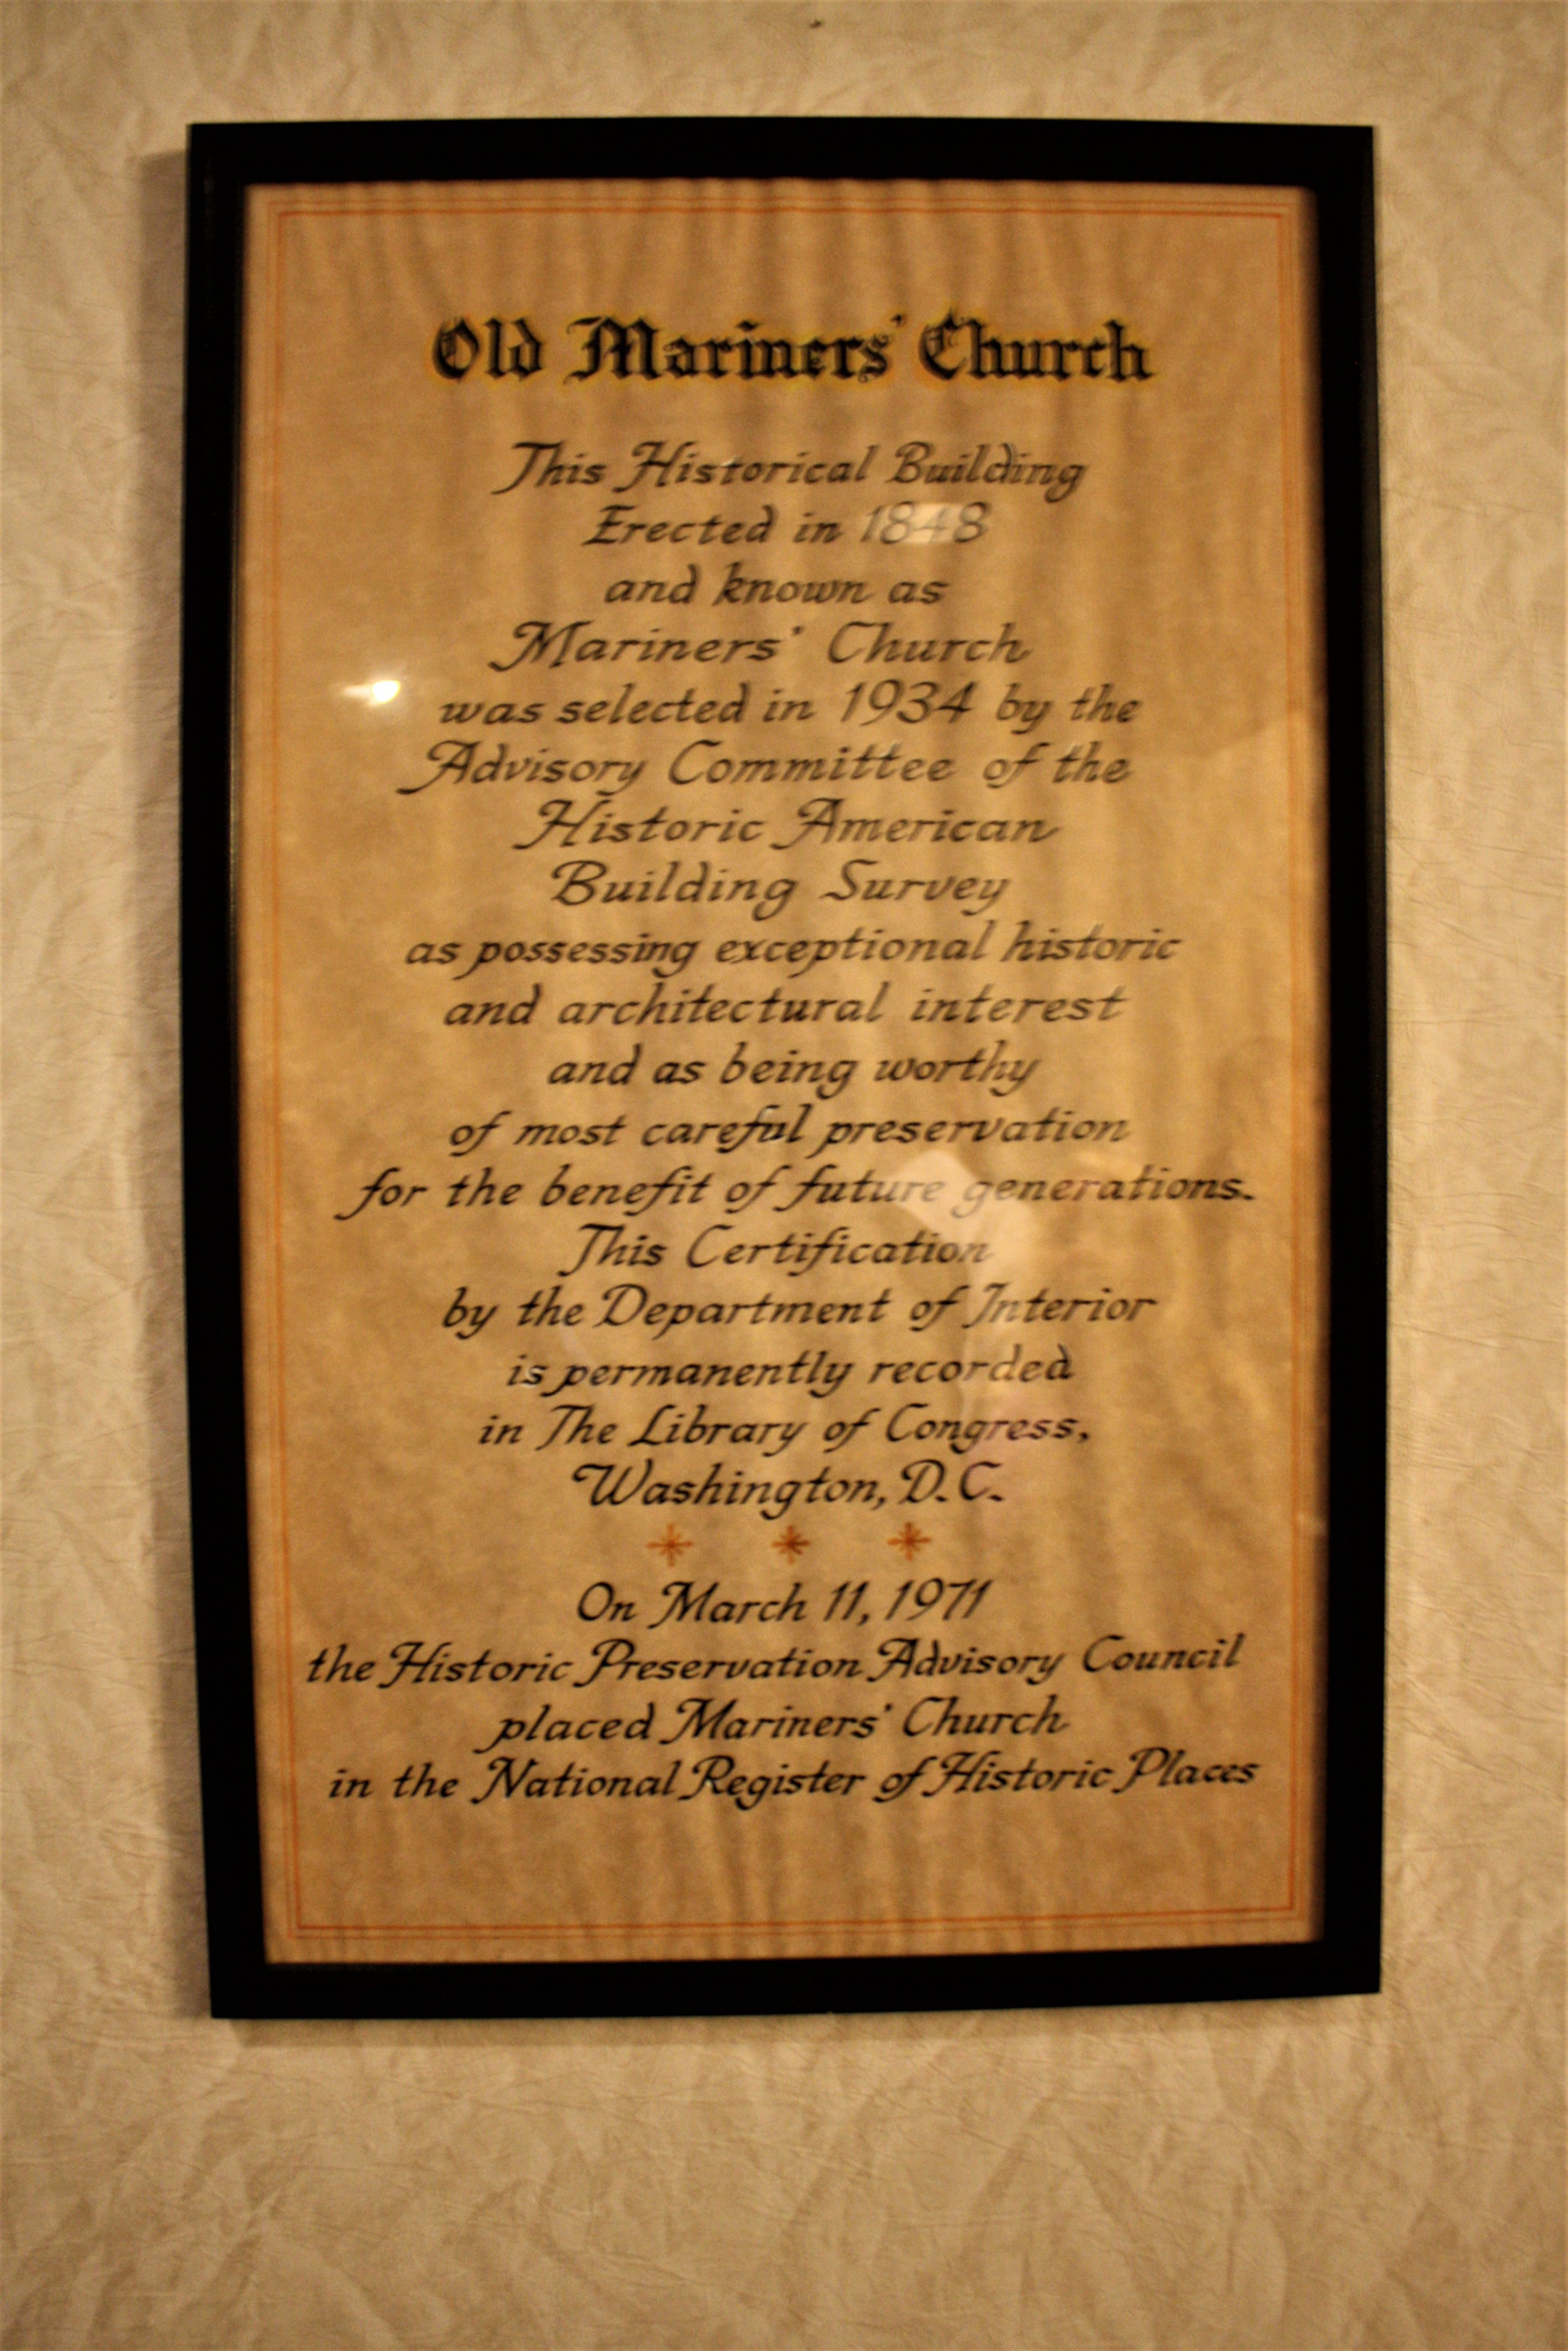 Old Mariners' Church
This Historical Building
Erected in 1848
and known as
Mariners' Church
was selected in 1934 by the
Advisory Committee of the
Historic American
Building Survey
as possessing exceptional historic
and architectural interest
and as being worthy
of most careful preservation
for the benefit of future generations.
This Certification
by the Department of Interior
is permanently recorded
in The Library of Congress,
Washington, D.C.
On March 11, 1971
the Historic Preservation Advisory Council
placed Mariners' Church
in the National Register of Historic Places